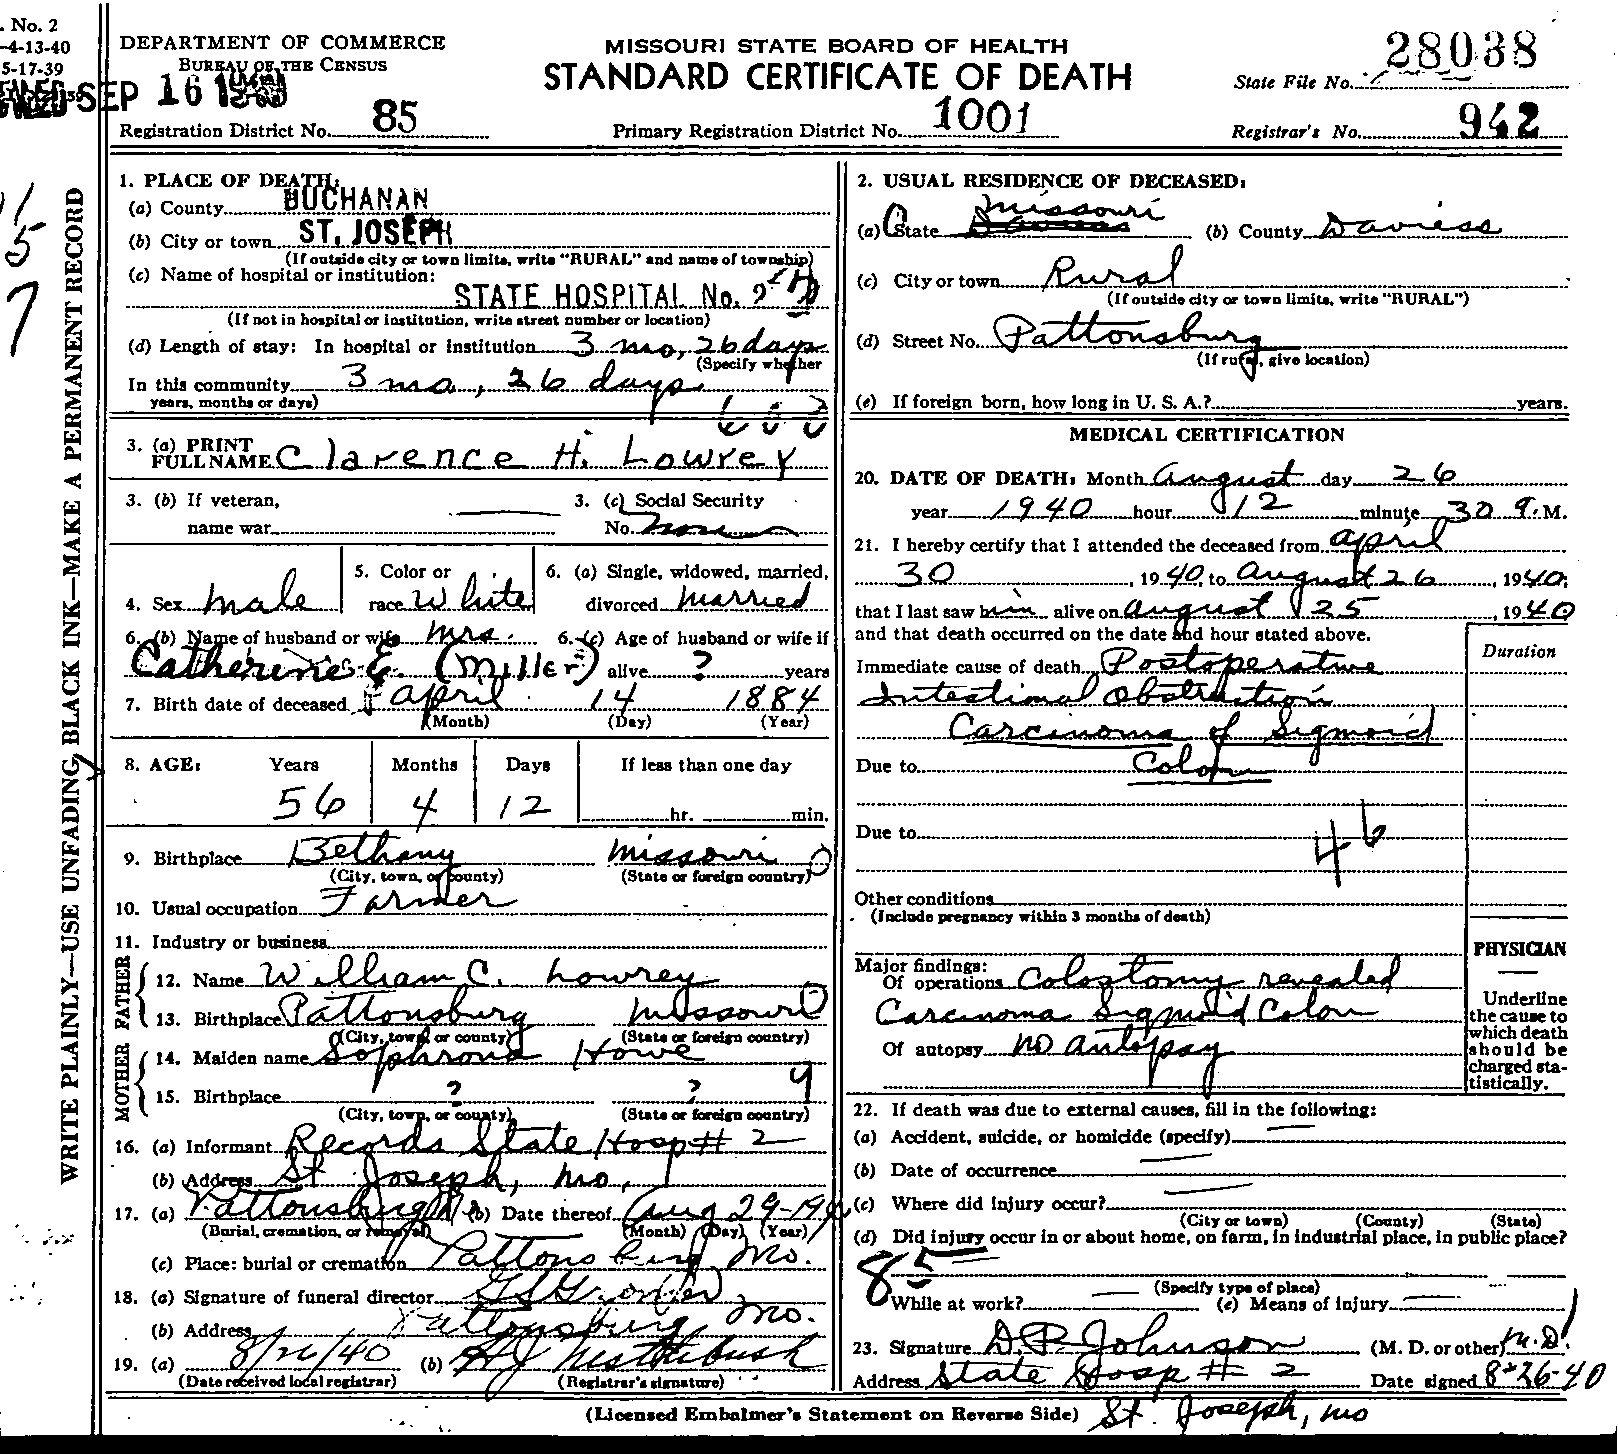 . No. 2
-4-13-40
5-17-39
SEP 16 1940
DEPARTMENT OF COMMERCE
BUREAU OF THE CENSUS
MISSOURI STATE BOARD OF HEALTH
STANDARD CERTIFICATE OF DEATH
State File No. 28038
Registration District No. 85
Primary Registration District No. 1001
Registrar's No. 942
WRITE PLAINLY—USE UNFADING BLACK INK—MAKE A PERMANENT RECORD
1. PLACE OF DEATH:
(a) County BUCHANAN
(b) City or town ST. JOSEPH
(If outside city or town limits, write "RURAL" and name of township)
(c) Name of hospital or institution:
STATE HOSPITAL No. 2
(If not in hospital or institution, write street number or location)
(d) Length of stay: In hospital or institution 3 mo, 26 days
(Specify whether
In this community 3 mo, 26 days
years, months or days)
3. (a) PRINT FULL NAME Clarence H. Lowrey
3. (b) If veteran,
name war
3. (c) Social Security
No. None
4. Sex male
5. Color or
race White
6. (a) Single, widowed, married,
divorced married
6. (b) Name of husband or wife Mrs.
Catherine E. (Miller)
6. (c) Age of husband or wife if
alive ? years
7. Birth date of deceased April 14 1884
(Month) (Day) (Year)
8. AGE: Years Months Days If less than one day
56 4 12 hr. min.
9. Birthplace Bethany Missouri
(City, town, or county) (State or foreign country)
10. Usual occupation Farmer
11. Industry or business
FATHER
12. Name William C. Lowrey
13. Birthplace Pattonsburg Missouri
(City, town, or county) (State or foreign country)
MOTHER
14. Maiden name Sophrona Howe
15. Birthplace ? ? 9
(City, town, or county) (State or foreign country)
16. (a) Informant Records State Hosp # 2
(b) Address St Joseph, Mo,
17. (a) Pattonsburg (b) Date thereof Aug 29-1940
(Burial, cremation, or removal) (Month) (Day) (Year)
(c) Place: burial or cremation Pattonsburg Mo.
18. (a) Signature of funeral director
(b) Address Pattonsburg Mo.
19. (a) 8/26/40 (b)
(Date received local registrar) (Registrar's signature)
2. USUAL RESIDENCE OF DECEASED:
(a) State Missouri (b) County Daviess
(c) City or town Rural
(If outside city or town limits, write "RURAL")
(d) Street No. Pattonsburg
(If rural, give location)
(e) If foreign born, how long in U. S. A.? years.
MEDICAL CERTIFICATION
20. DATE OF DEATH: Month August day 26
year 1940 hour 12 minute 30 a. M.
21. I hereby certify that I attended the deceased from April
30, 1940, to August 26, 1940;
that I last saw him alive on August 25, 1940
and that death occurred on the date and hour stated above.
Duration
Immediate cause of death Postoperative
Intestional Obstruction
Carcinoma of Sigmoid
Due to Colon
Due to
46
Other conditions
(Include pregnancy within 3 months of death)
Major findings:
Of operations Colostomy revealed
Carcinoma Sigmoid Colon
Of autopsy no autopsy
PHYSICIAN
Underline
the cause to
which death
should be
charged sta-
tistically.
22. If death was due to external causes, fill in the following:
(a) Accident, suicide, or homicide (specify)
(b) Date of occurrence
(c) Where did injury occur?
(City or town) (County) (State)
(d) Did injury occur in or about home, on farm, in industrial place, in public place?
85
(Specify type of place)
While at work? (e) Means of injury
23. Signature D.P. Johnson (M. D. or other) M.D.
Address State Hosp # 2 Date signed 8-26-40
St. Joseph, Mo
(Licensed Embalmer's Statement on Reverse Side)